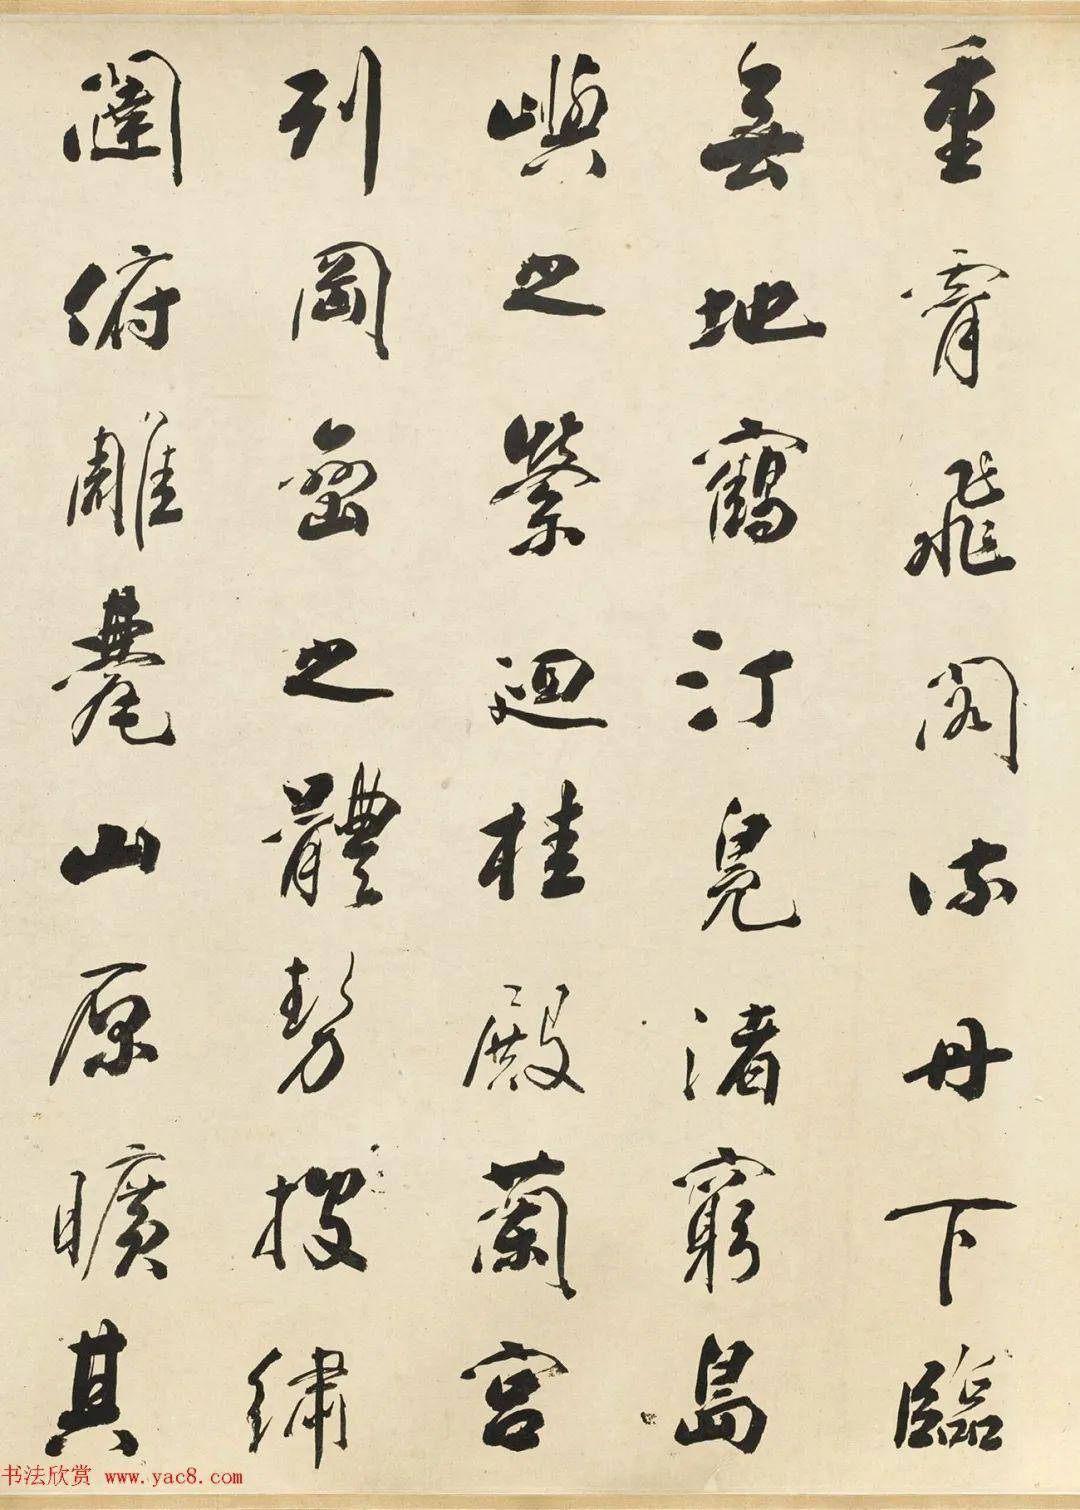 重霄飛閣流丹下臨
無地鶴汀鳧渚窮島
嶼之縈迴桂殿蘭宮
列岡巒之體勢披繡
闥俯雕甍山原曠其
书法欣赏 www.yac8.com